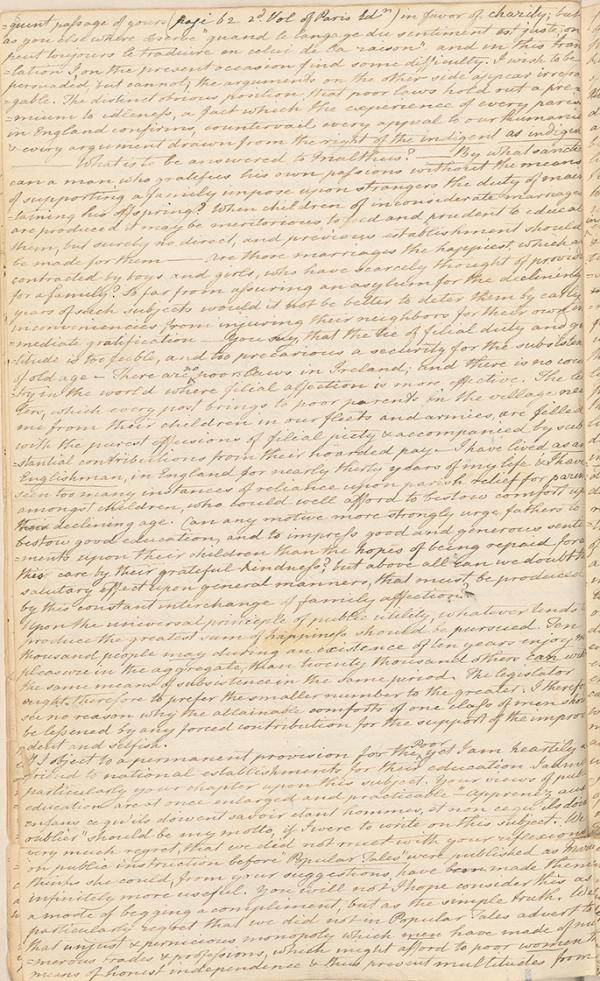 =quent passage of yours (page 62 2d Vol of Paris Edn) in favor of charity; but
as you else where "quand le langage du sentiment est juste, on
peut toujours le traduire en celui de la raison" and in this tran
=lation I, on the present occasion find some difficulty. I wish to be
persuaded, but cannot; the arguments on the other side appear irrefra
=gable. The distinct obvious position, that poor laws hold out a pre=
=mium to idleness, a fact which the experience of every paris
in England confirms, countervail every appeal to our humanit
& every argument drawn from the right of the indigent as indigen
— What is to be answered to Malthus? — By what sanct
can a man, who gratifies his own passions without the means
of supporting a family impose upon strangers the duty of main
=taining his offspring? When children of inconsiderate marriages
are produced it may be meritorious to feed and prudent to educat
them, but surely no direct, and previous establishment should
be made for them — Are those marriages the happiest, which are
contracted by boys and girls, who have scarcely thought of provid
for a family? So far from assuring an asylum for the declining
years of such subjects would it not be better to deter them by early
inconveniences, from injuring their neighbors for their own im
=mediate gratification — You say, that the tie of filial duty and gr
titude is too feeble, and too precarious a security for the subsisten
of old age — There are no poor laws in Ireland; and there is no coun
try in the world where filial affection is more effective. The let
ters, which every post brings to poor parents in the village nea
me from their children in our fleets and armies, are filled
with the purest effusions of filial piety & accompanied by sub
=stantial contributions from their hoarded pay — I have lived as an
Englishman, in England for nearly thirty years of my life & I have
seen too many instances of reliance upon parish relief for paren
amongst children, who could well afford to bestow comfort up
declining age. Can any motive more strongly urge fathers to
bestow good education, and to impress good and generous senti
=ments upon their children than the hopes of being repaid for a
this care by their grateful kindness? but above all can we doubt th
salutary effect upon general manners, that must be produced
by this constant interchange of family affection?
Upon the universal principle of public utility, whatever tends t
produce the greatest sum of happiness should be pursued. Ten
thousand people may during an existence of ten years enjoy m
pleasure in the aggregate, than twenty thousand others can with
the same means of subsistence in the same period. The legislator
ought therefore to prefer the smaller number to the greater. I therefo
see no reason why the attainable comforts of one class of men shou
be lessened by any forced contribution for the support of the improv
dent and selfish.
If I object to a permanent provision for the Poor, yet I am heartily a
friend to national establishments for their education I admi
particularly your chapter upon this subject. Your views of pub
education are at once enlarged and practicable "Apprenez aux
enfans ce qu'ils doivent savoir etant hommes, et non ce qu'ils doiv
oublier" should be my motto, if I were to write on this subject. We
very much regret, that we did not meet with your reflexions
on public instruction before Popular Tales were published as
thinks she could, from your suggestions, have been made them
infinitely more useful. You will not I hope consider this as
a mode of begging a compliment, but as the simple truth. We
particularly regret that we did not in Popular Tales advert to
that unjust & pernicious monopoly which men have made of nu
=merous trades & professions, which might afford to poor women t
means of honest independence & thus prevent multitudes from